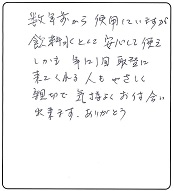 数年前から使用していますが
飲料水として安心して使え
しかも年に1回取替に
来てくれる人もやさしく
親切で気持よくお付合い
出来ます。ありがとう